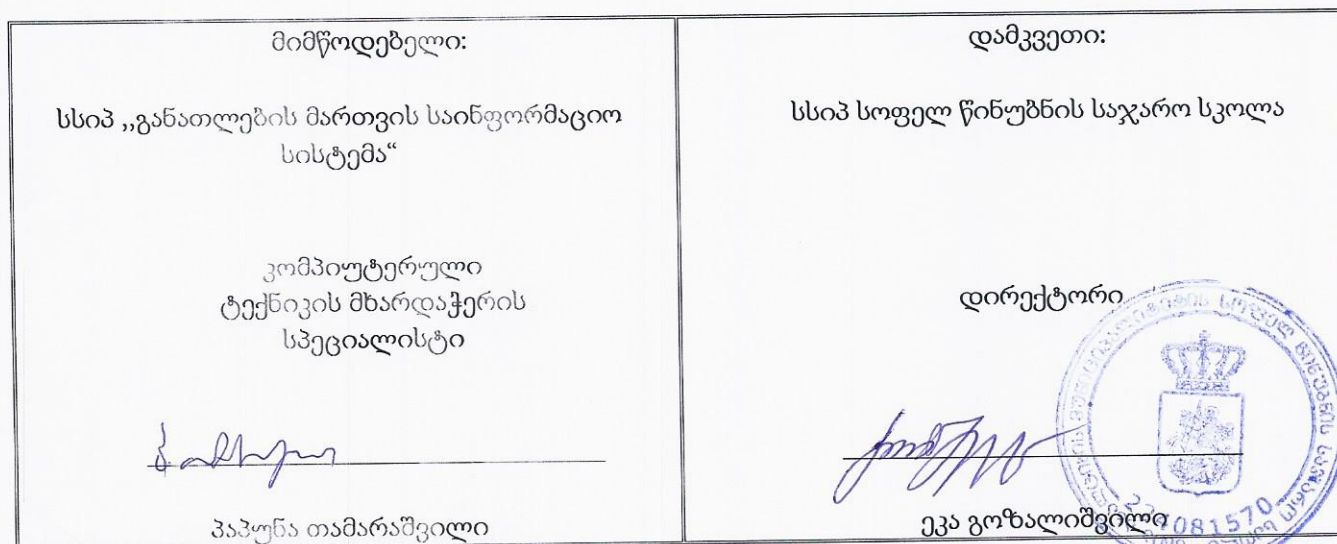 მიმწოდებელი:
სსიპ ,,განათლების მართვის საინფორმაციო
სისტემა“
კომპიუტერული
ტექნიკის მხარდაჭერის
სპეციალისტი
პაპუნა თამარაშვილი
დამკვეთი:
სსიპ სოფელ წინუბნის საჯარო სკოლა
დირექტორი
ეკა გოზალიშვილი
მუნიციპალიტეტის სოფელ წინუბნის საჯარო სკოლა